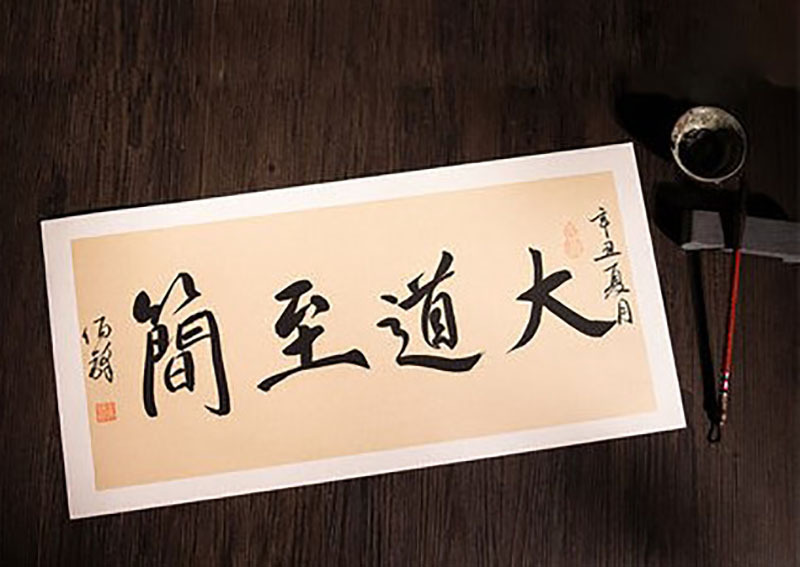 辛丑夏月
大道至簡